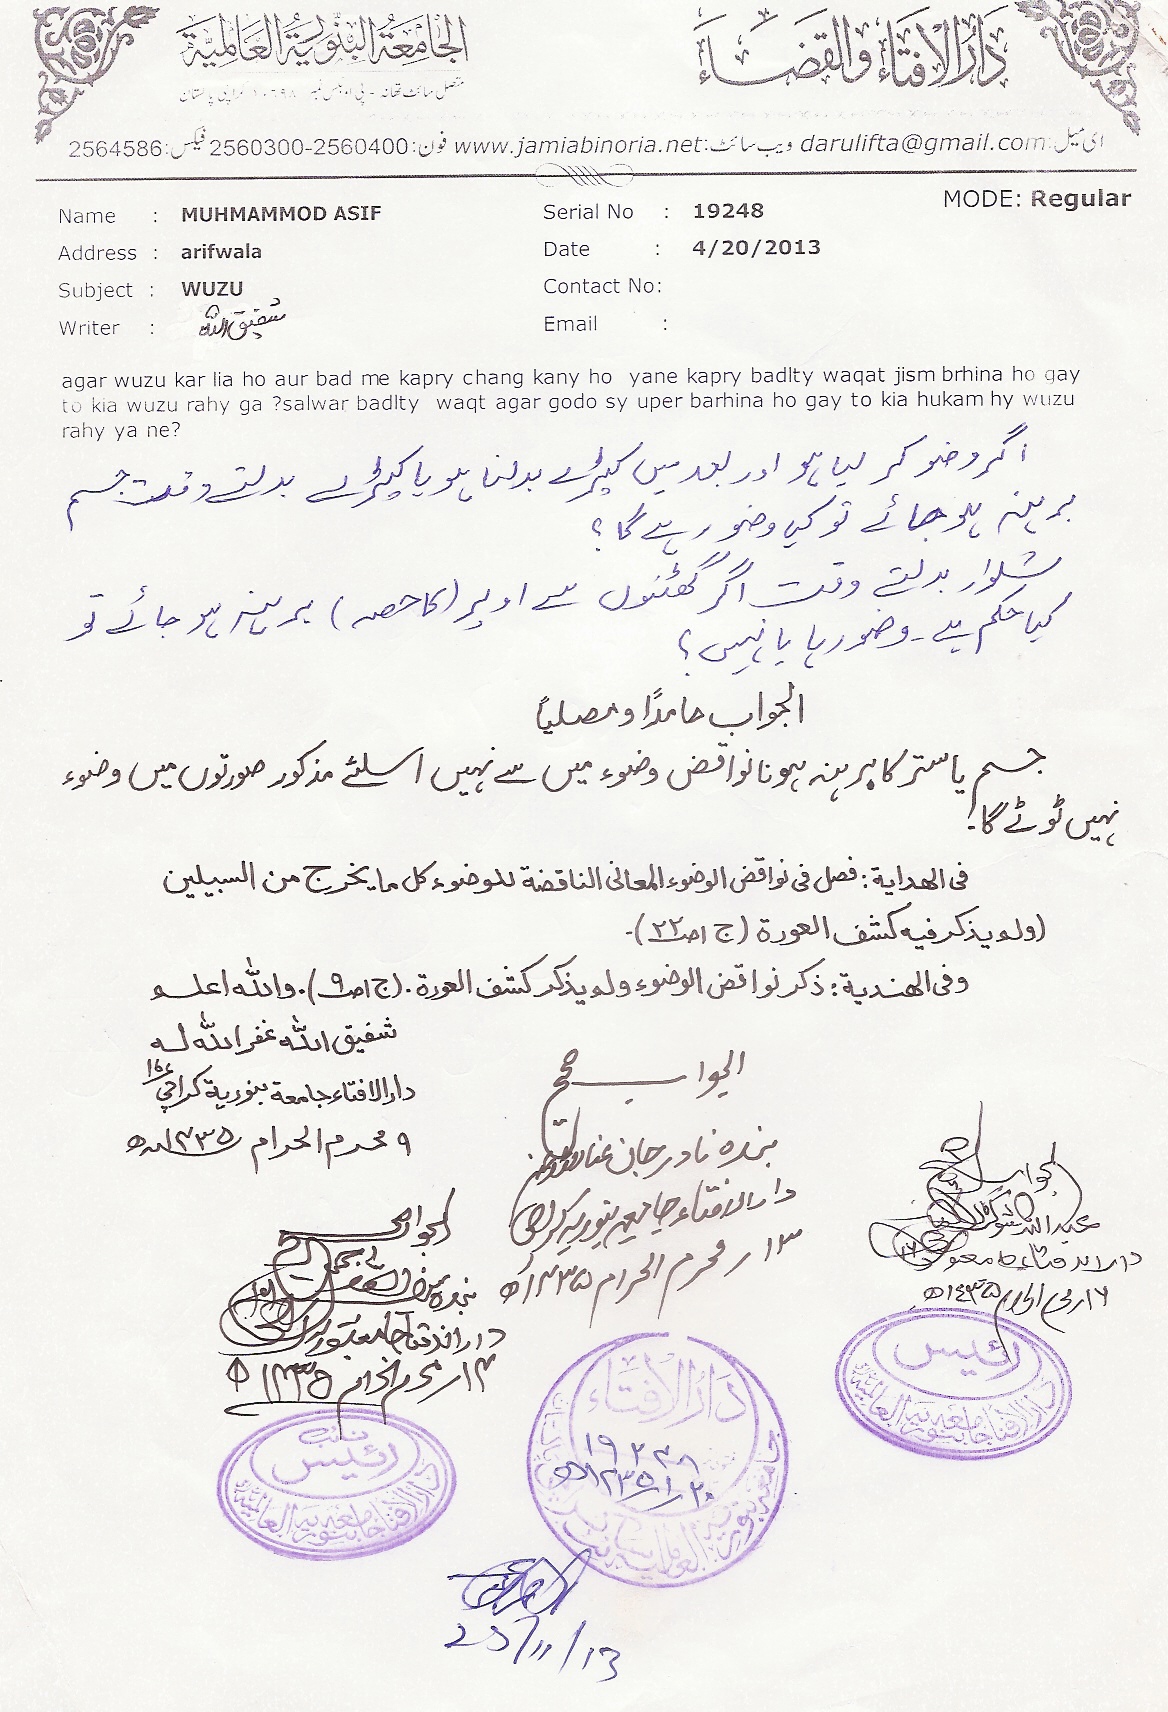 دارالافتاء والقضاء
الجامعة البنورية العالمية
متصل سائٹ تھانہ - پی او بکس نمبر ۱۰۶۹۸ کراچی پاکستان
ای میل:darulifta@gmail.com ویب سائٹ:www.jamiabinoria.net فون:2560300-2560400 فیکس:2564586
MODE: Regular
Name : MUHMAMMOD ASIF
Serial No : 19248
Address : arifwala
Date : 4/20/2013
Subject : WUZU
Contact No:
Writer : شفیق اللہ
Email :
agar wuzu kar lia ho aur bad me kapry chang kany ho yane kapry badlty waqat jism brhina ho gay
to kia wuzu rahy ga ?salwar badlty waqt agar godo sy uper barhina ho gay to kia hukam hy wuzu
rahy ya ne?
اگر وضو کر لیا ہو اور بعد میں کپڑے بدلنا ہو یا کپڑے بدلتے وقت جسم
برہنہ ہو جائے تو کیا وضو رہے گا؟
شلوار بدلتے وقت اگر گھٹنوں سے اوپر (کا حصہ) برہنہ ہو جائے تو
کیا حکم ہے۔ وضو رہا یا نہیں؟
الجواب حامدًا و مصلیاً
جسم یا ستر کا برہنہ ہونا نواقض وضوء میں سے نہیں اسلئے مذکور صورتوں میں وضوء
نہیں ٹوٹے گا۔
فی الهدایة: فصل فی نواقض الوضوء المعانی الناقضة للوضوء کل ما یخرج من السبیلین
(ولم یذکر فیه کشف العورة (ج ۱ ص ۲۲)۔
وفی الهندیة: ذکر نواقض الوضوء ولم یذکر کشف العورة۔ (ج ۱ ص ۹)۔ واللہ اعلم
شفیق اللہ غفر اللہ لہ
دارالافتاء جامعة بنوریة کراچی ۱۶
۹ محرم الحرام ۱۴۳۵ھ
الجواب صحیح
بندہ نادر جان
دارالافتاء جامعہ بنوریہ کراچی
۱۳ / محرم الحرام ۱۴۳۵ھ
الجواب صحیح
دارالافتاء جامعہ بنوریہ
۱۶ / محرم الحرام ۱۴۳۵ھ
الجواب صحیح
بندہ
دارالافتاء جامعہ بنوریہ
۱۳ / محرم الحرام ۱۴۳۵ھ
رئیس
دارالافتاء جامعہ بنوریہ العالمیۃ
نائب رئیس
دارالافتاء جامعہ بنوریہ العالمیۃ
دارالافتاء
۱۹۲۴۸
۲۰/۱/۱۴۳۵ھ
جامعہ بنوریہ العالمیۃ
25/11/13